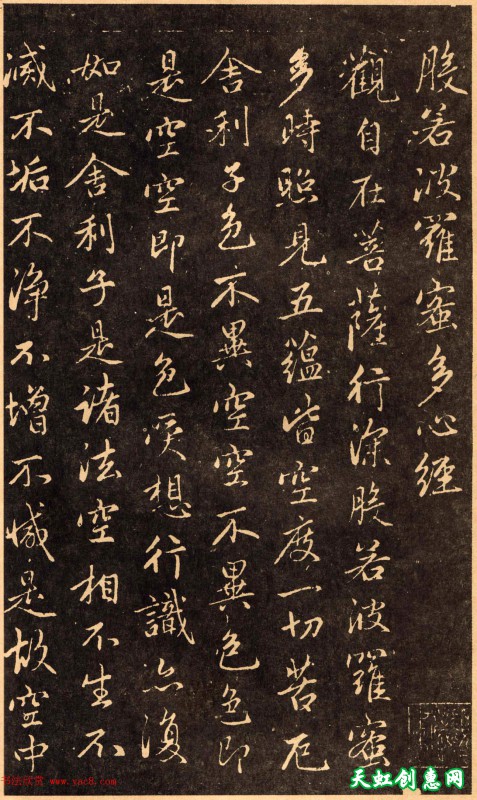 般若波羅蜜多心經
觀自在菩薩行深般若波羅蜜
多時照見五蘊皆空度一切苦厄
舍利子色不異空空不異色色即
是空空即是色受想行識亦復
如是舍利子是諸法空相不生不
滅不垢不淨不增不減是故空中
书法欣赏 www.yac8.com
天虹创惠网